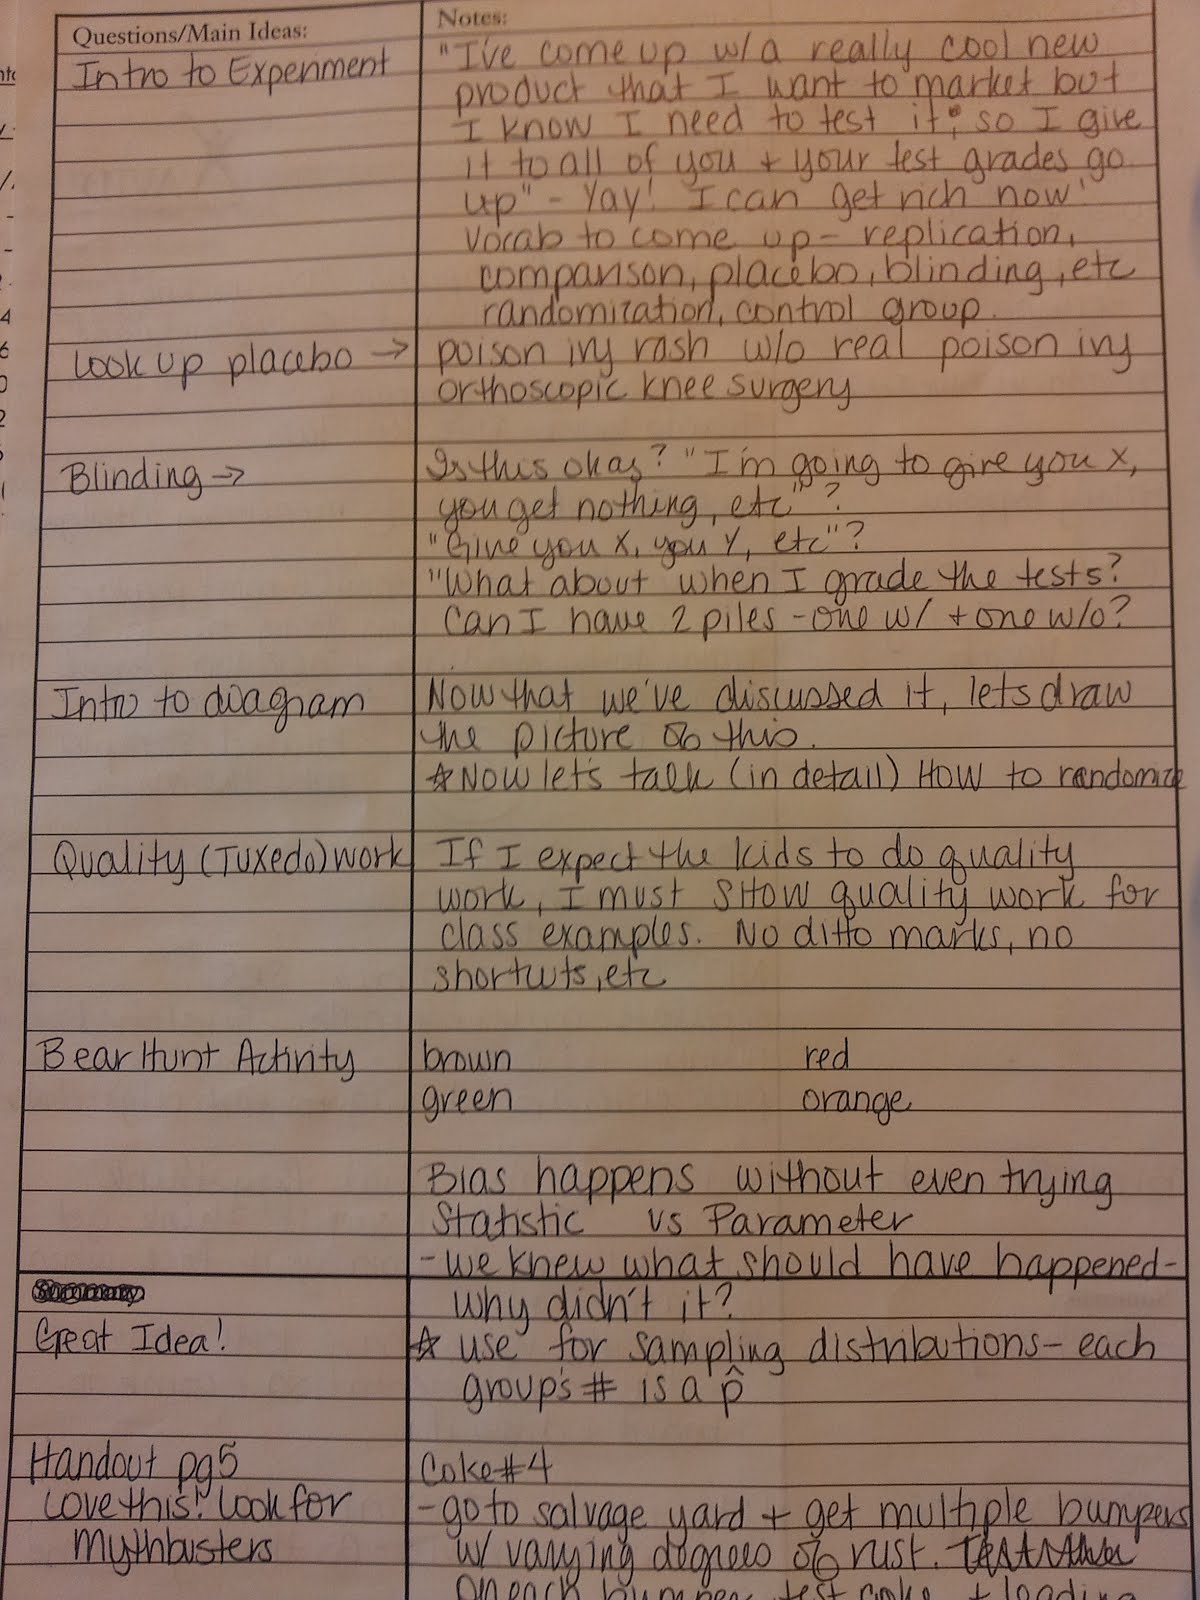 Questions/Main Ideas:
Notes:
Intro to Experiment
"I've come up w/a really cool new
product that I want to market but
I know I need to test it; so I give
it to all of you + your test grades go
up" - Yay! I can get rich now!
Vocab to come up - replication,
comparison, placebo, blinding, etc
randomization, control group.
Look up placebo →
poison ivy rash w/o real poison ivy
orthoscopic knee surgery
Blinding →
Is this okay? "I'm going to give you X,
you get nothing, etc"?
"Give you X, you Y, etc"?
"What about when I grade the tests?
Can I have 2 piles - one w/ + one w/o?
Intro to diagram
Now that we've discussed it, lets draw
the picture of this.
☆ Now let's talk (in detail) HOW to randomize
Quality (Tuxedo) work
If I expect the kids to do quality
work, I must SHOW quality work for
class examples. No ditto marks, no
shortcuts, etc
Bear Hunt Activity
brown red
green orange
Bias happens without even trying
Statistic vs Parameter
- we knew what should have happened -
why didn't it?
Great Idea!
☆ use for sampling distributions - each
group's # is a p̂
Handout pg 5
Love this! Look for
Mythbusters
Coke #4
- go to salvage yard + get multiple bumpers
w/ varying degrees of rust.
on each bumper, test coke + leading